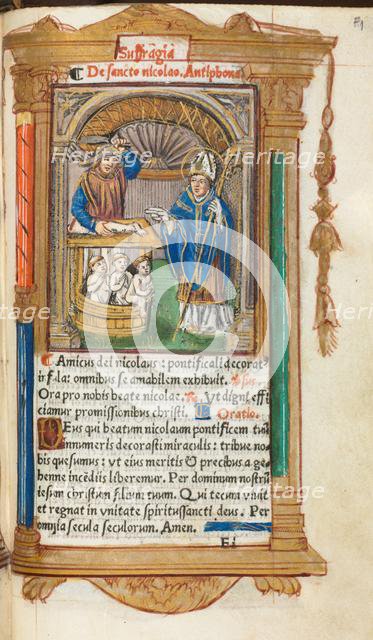 F1
Suffragia
De sancto nicolao. Antiphona
Amicus dei nicolaus: pontificali decorat⁹
ifula: omnibus se amabilem exhibuit. ℣sus.
Ora pro nobis beate nicolae. ℟. Vt digni effi
ciamur promissionibus christi. Oratio.
Deus qui beatum nicolaum pontificem tuū
innumeris decorasti miraculis: tribue no-
bis quesumus: vt eius meritis & precibus a ge-
henne incēdiis liberemur. Per dominum nostrū
iesum christum filium tuum. Qui tecum viuit
et regnat in vnitate spiritussancti deus. Per
omnia secula seculorum. Amen.
Fi
Heritage
Heritage
Heritage
Heritage
Heritage
Heritage